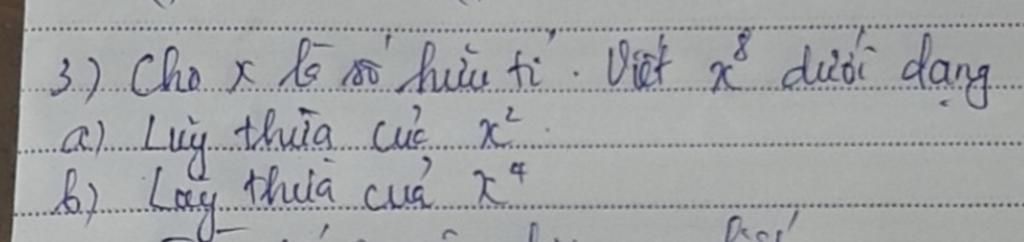 3.) Cho x là số hữu tỉ. Viết x⁸ dưới dạng
a) Lũy thừa của x².
b) Lũy thừa của x⁴